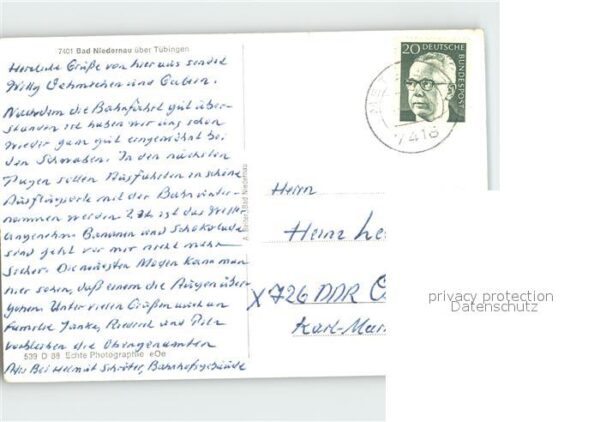 7401 Bad Niedernau über Tübingen
Herzliche Grüße von hier aus sendet
Willy Oehmichen und
Nachdem die Bahnfahrt gut über-
standen ist haben wir uns schon
wieder ganz gut eingewöhnt bei
den Schwaben. In den nächsten
Tagen sollen Ausfahrten in schöne
Ausflugsorte mit der Bahn unter-
nommen werden. Z.Zt. ist das Wetter
angenehm. Bananen und Schokolade
sind jetzt vor mir nicht mehr
sicher. Die neuesten Moden kann man
hier sehen, daß einem die Augen über-
gehen. Unter vielen Grüßen auch an
Familie Janke, und Pilz
verbleiben die Obengenannten
539 D 88 Echte Photographie eOe
Adr. Bei Helmut Schröter, Bahnhofsgebäude
Bad Niedernau
20 DEUTSCHE
BUNDESPOST
7418
Herrn
Heinz
X 726 DDR
Karl-Mar
privacy protection
Datenschutz